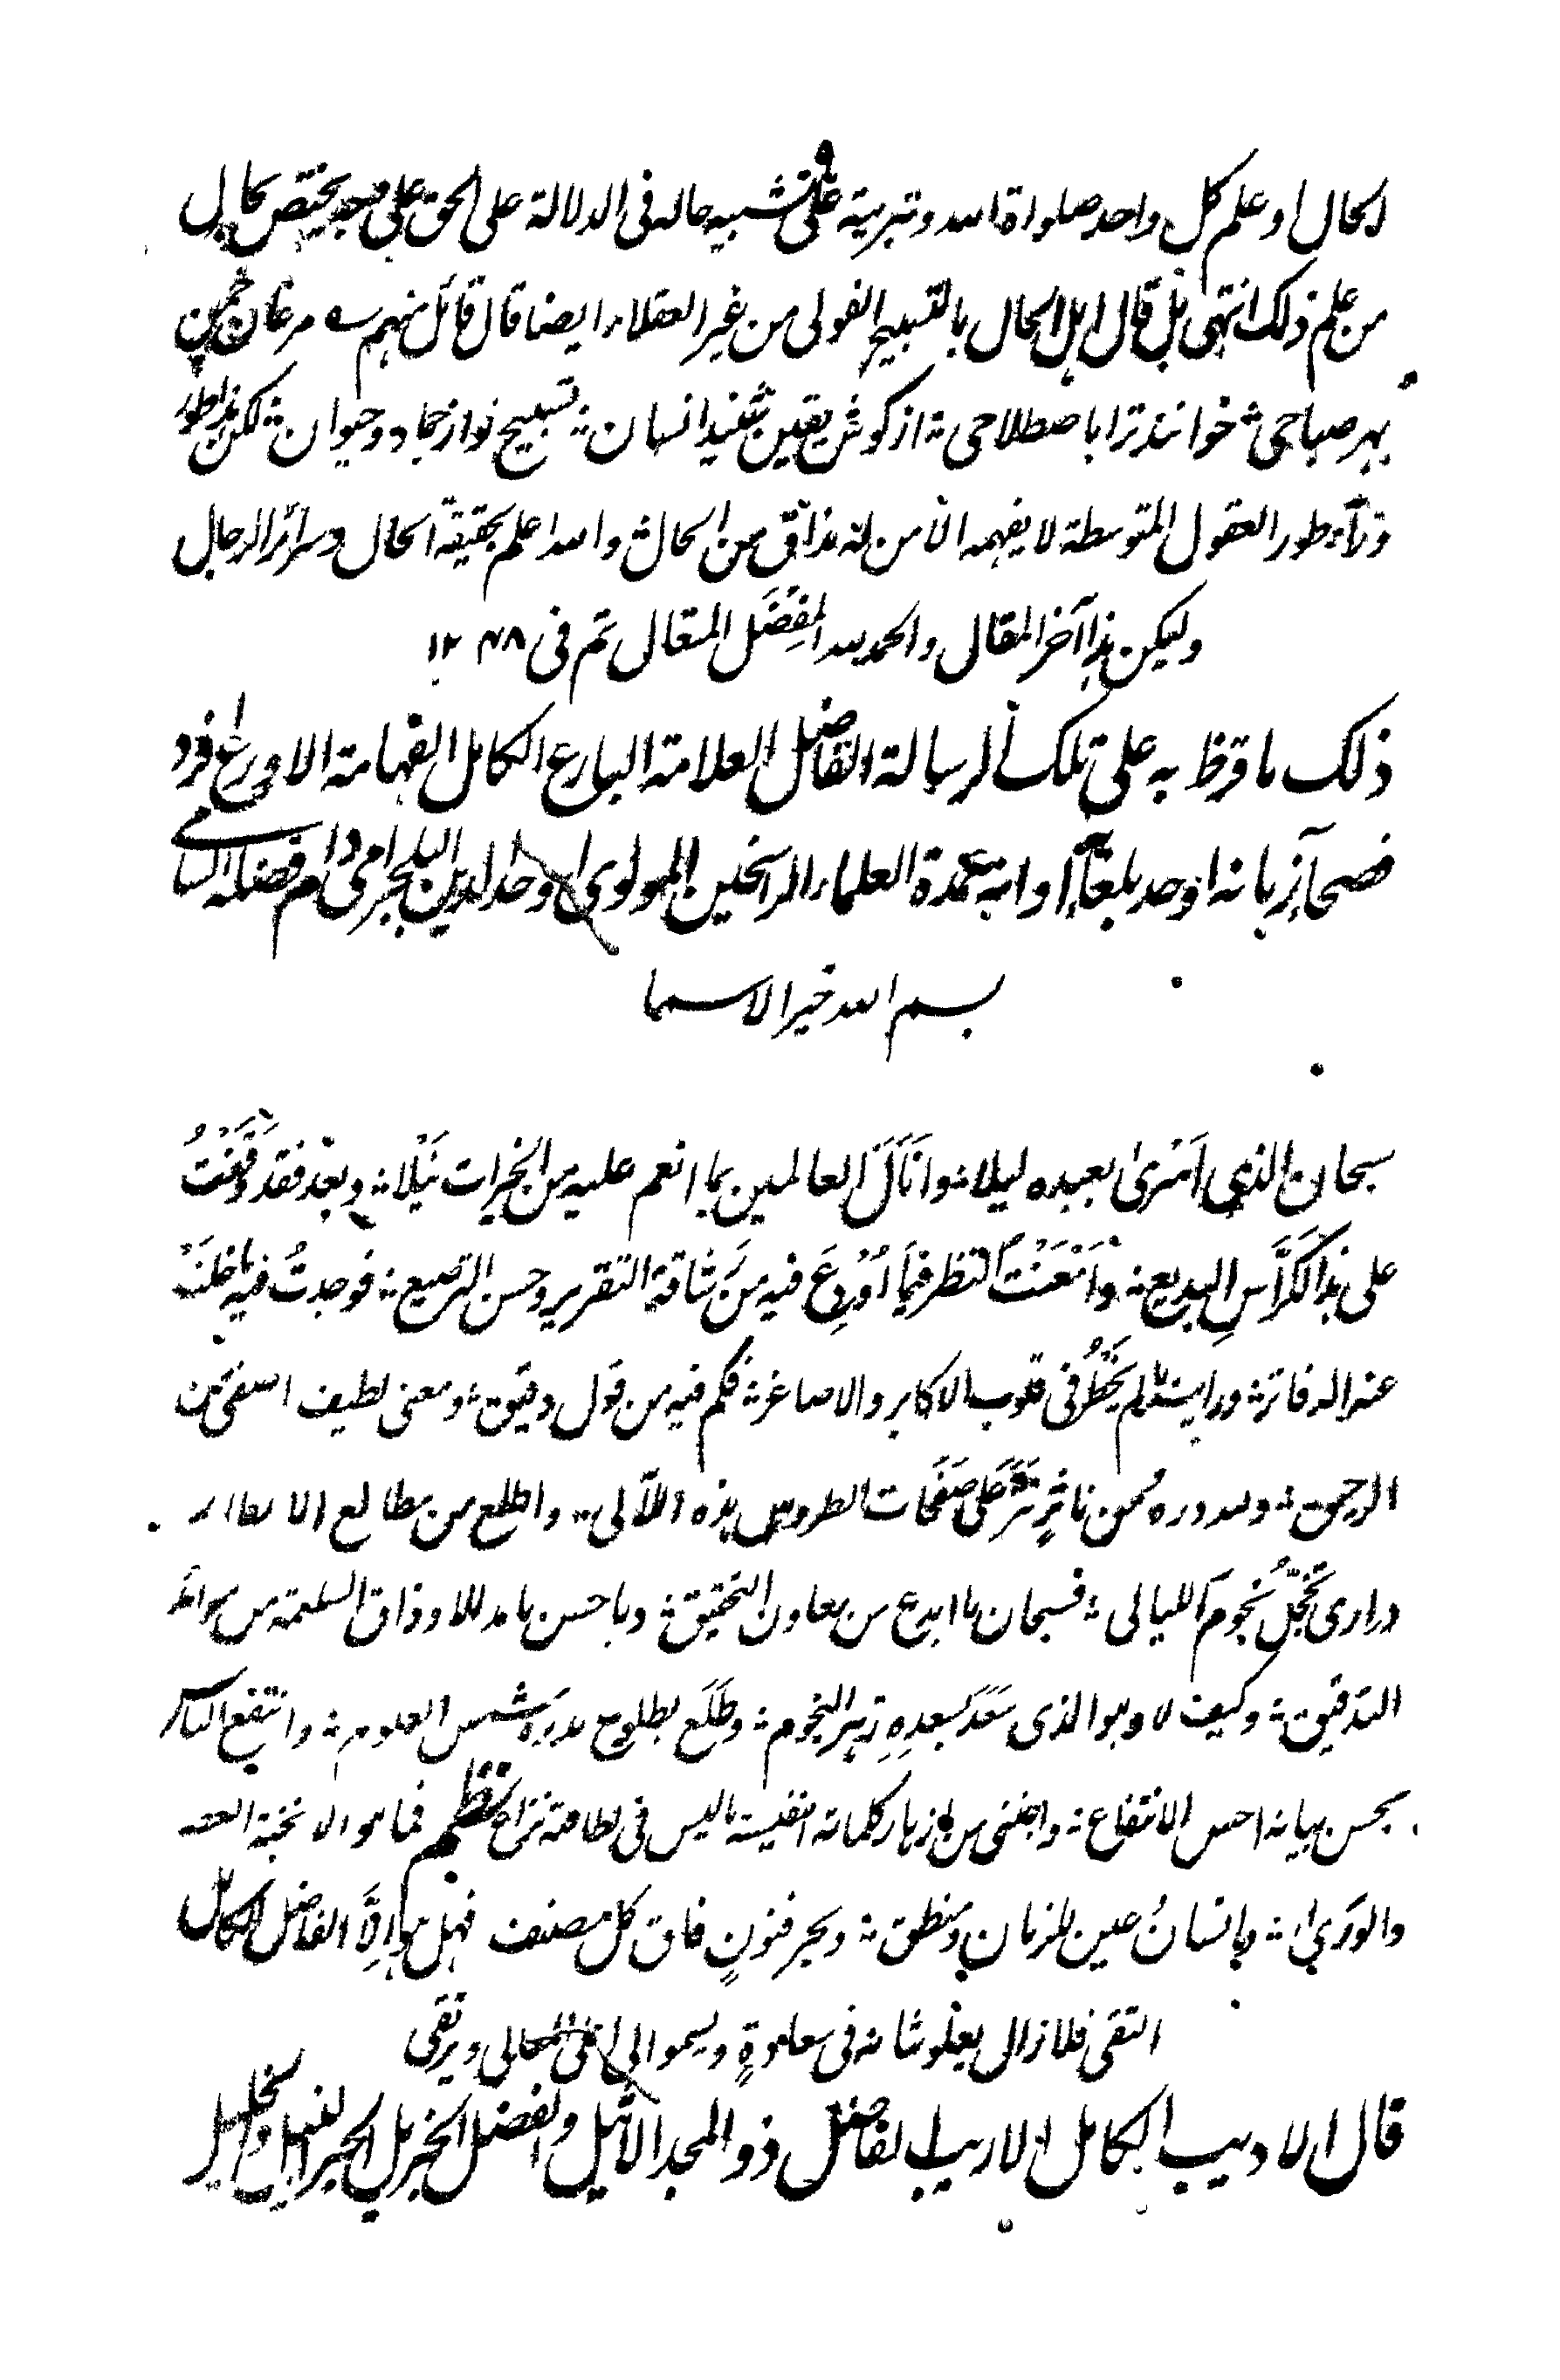 الحال او علم كل واحد صلواة الله وتبريته على تشبيه حاله فى الدلالة على الحق على وجه يختص بحال
من علم ذلك انتهى بل قال اهل الحال بالتسبيح القولى من غير العقلاء ايضا قال قائل منهم ے مرغان چمن
بهر صباحى ؞ خوانند ترا باصطلاحى ؞ از كوش يقين شنيد انسان ؞ تسبيح تو از جماد وحيوان ؞ لكن هذا طور
ورآء طور العقول المتوسطة لا يفهمه الا من له مذاق من الحال ؞ والله اعلم بحقيقة الحال وسرائر الرجال
وليكن هذا آخر المقال والحمد لله المفضل المتعال تم فى ۱۲۴۸
ذلك ما قرظ به على تلك الرسالة الفاضل العلامة البارع الكامل الفهامة الاورع فرد
فصحآء زمانه اوحد بلغآء اوانه عمدة العلماء الراسخين المولوى اوحد الدين البلجرامى دام فضله السامے
بسم الله خير الاسما
سبحان الذى اسرى بعبده ليلا ؞ وانال العالمين بما انعم عليه من الخيرات نيلا ؞ وبعد فقد وقفت
على هذا الكراس البديع ؞ وامعنت النظر فيما اودع فيه من رشاقة التقرير وحسن الترصيع ؞ فوجدت فيه ما خلت
عنه الدفاتر ؞ ورايت ما لم يخطر فى قلوب الاكابر والاصاغر ؞ فكم فيه من قول دقيق ؞ ومعنى لطيف اصفى من
الرحيق ؞ ولله دره من ناثر نثر على صفحات الطروس هذه اللآلى ؞ واطلع من مطالع الا
درارى تخجل نجوم الليالى ؞ فسبحان ما ابدع من معاون التحقيق ؞ وما حسن ما مد للاذواق السليمة من موائد
التدقيق ؞ وكيف لا وهو الذى سعد بسعده زهر النجوم ؞ وطلع بطلوع بدره شمس العلوم ؞ وانتفع الناس
بحسن بيانه احسن الانتفاع ؞ واجتنى من ازهار كلماته النفيسة ما ليس فى لطافته نزاع نظم فما هو الا نخبة
والورى ؞ وانسان عين للزمان ومنطق ؞ وبحر فنون فاق كل مصنف فهل هو الا الفاضل الكامل
التقى فلا زال يعلو شانه فى سعادة ويسمو الى اعلى المعالى ويرتقى
قال الاديب الكامل الاريب الفاضل ذو المجد الاثيل والفضل الجزيل الحبر النبيل والجليل